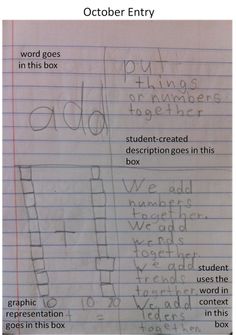 October Entry
word goes
in this box
add
put
things
or numbers
together
student-created
description goes in this
box
We add
numbers
together.
We add
words
together
We add
trends
together
We add
leders
together
student
uses the
word in
context
in this
box
graphic
representation
goes in this box
10 + 10 = 20